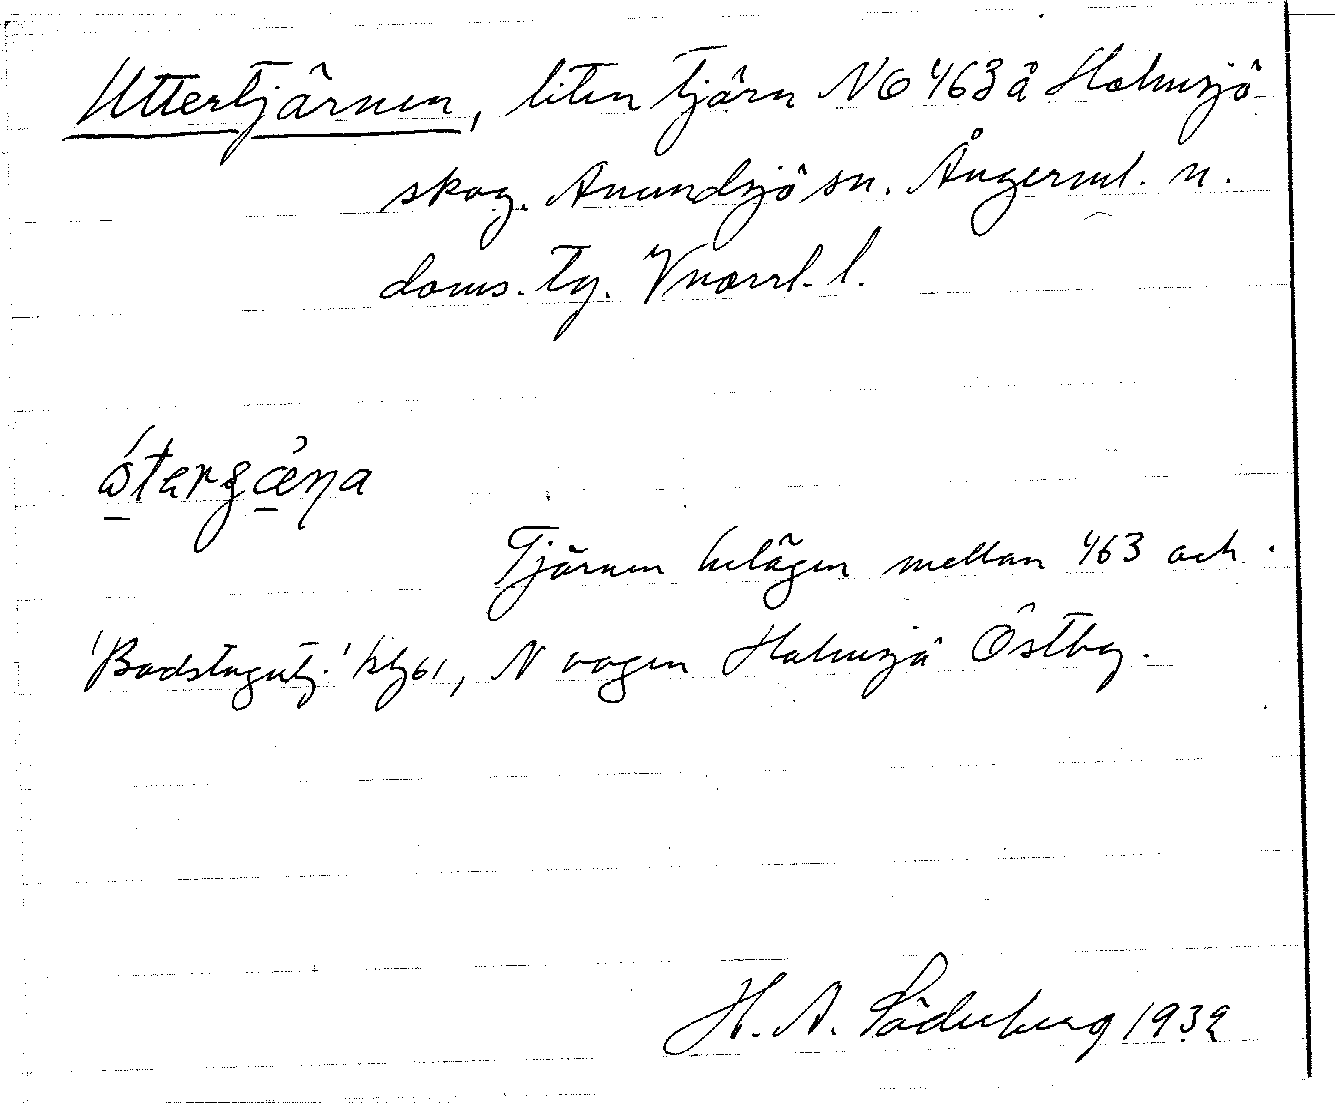 Uttertjärnen, liten tjärn NO 463 å Holmsjö
skog. Anundsjö sn. Ångerml. n.
doms. tg. Vnorrl. l.
Tjärnen belägen mellan 463 och
'Badstugutj.' 461, N vägen Holmsjö Östby.
H. A. Söderberg 1932